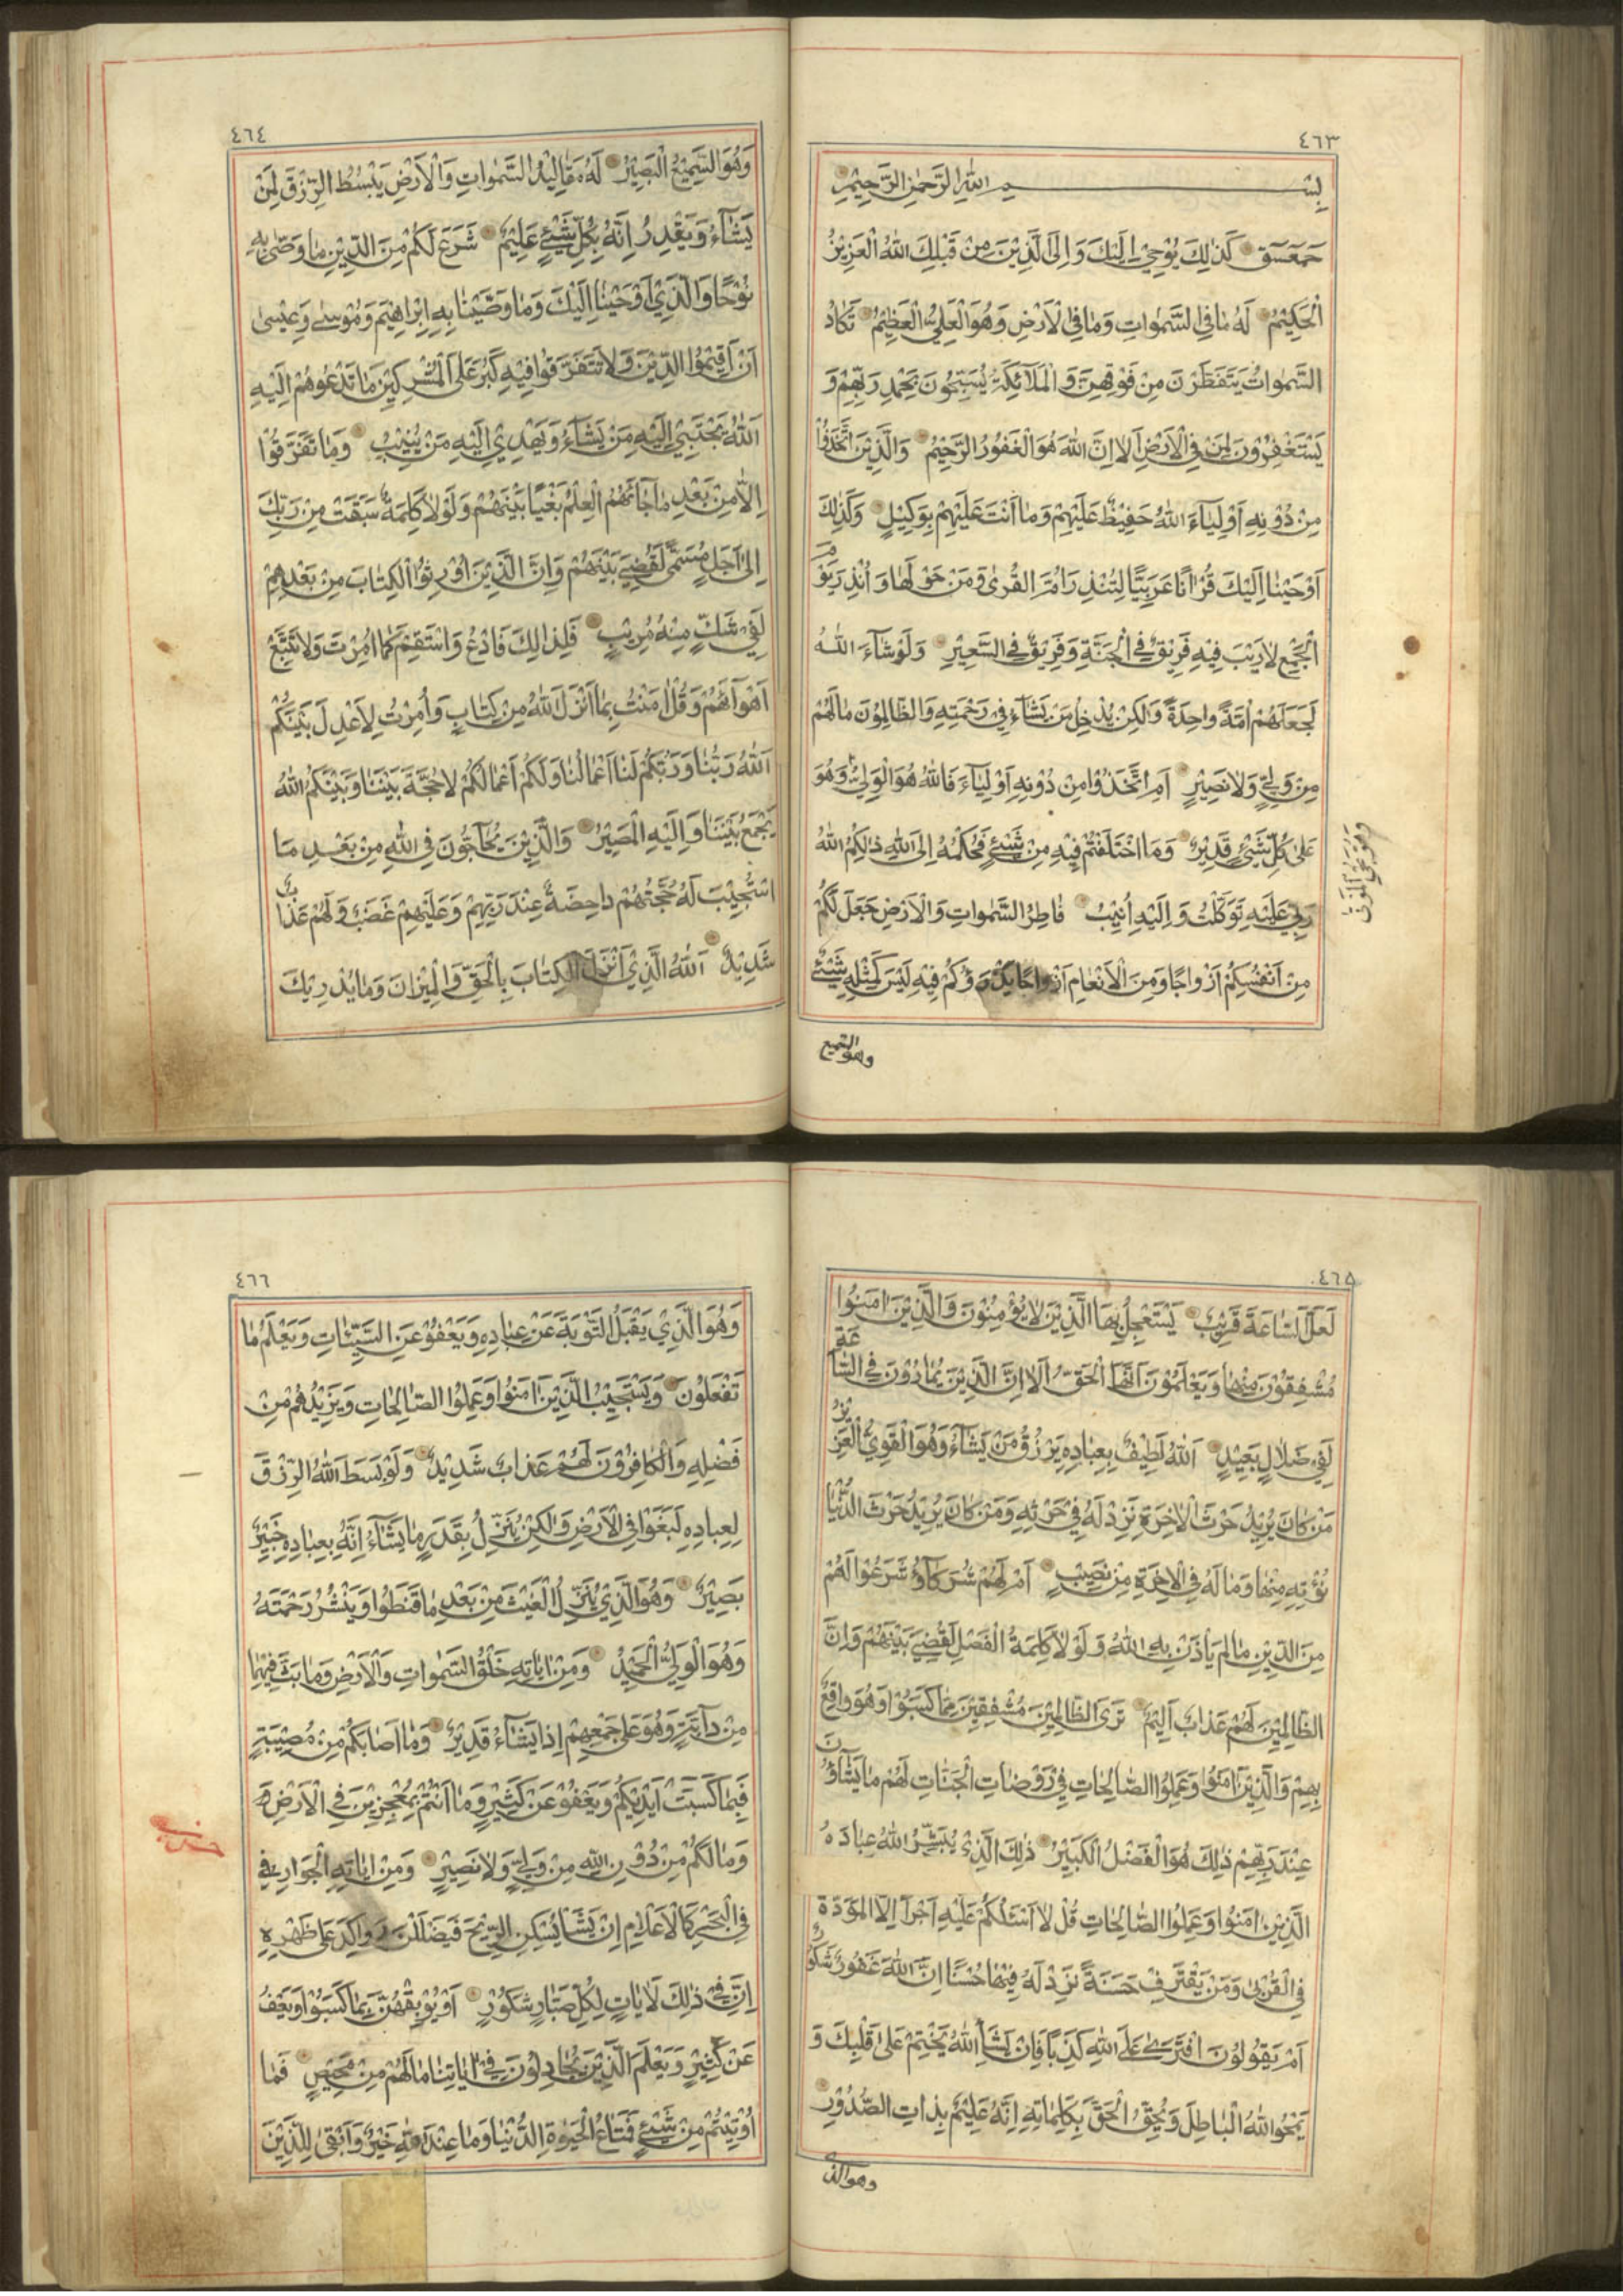 ٤٦٣
بِسْمِ اللهِ الرَّحْمٰنِ الرَّحِيْمِ
حٰمٓعٓسٓقٓ كَذٰلِكَ يُوْحِيْ اِلَيْكَ وَاِلَى الَّذِيْنَ مِنْ قَبْلِكَ اللهُ الْعَزِيْزُ
الْحَكِيْمُ لَهُ مَا فِي السَّمٰوَاتِ وَمَا فِي الْاَرْضِ وَهُوَ الْعَلِيُّ الْعَظِيْمُ تَكَادُ
السَّمٰوَاتُ يَتَفَطَّرْنَ مِنْ فَوْقِهِنَّ وَالْمَلَآئِكَةُ يُسَبِّحُونَ بِحَمْدِ رَبِّهِمْ وَ
يَسْتَغْفِرُوْنَ لِمَنْ فِي الْاَرْضِ اَلَا اِنَّ اللهَ هُوَ الْغَفُوْرُ الرَّحِيْمُ وَالَّذِيْنَ اتَّخَذُوْا
مِنْ دُوْنِهِ اَوْلِيَآءَ اللهُ حَفِيْظٌ عَلَيْهِمْ وَمَا اَنْتَ عَلَيْهِمْ بِوَكِيْلٍ وَكَذٰلِكَ
اَوْحَيْنَا اِلَيْكَ قُرْاٰنًا عَرَبِيًّا لِتُنْذِرَ اُمَّ الْقُرٰى وَمَنْ حَوْلَهَا وَ اُنْذِرَ يَوْمَ
الْجَمْعِ لَا رَيْبَ فِيْهِ فَرِيْقٌ فِي الْجَنَّةِ وَفَرِيْقٌ فِي السَّعِيْرِ وَلَوْ شَآءَ اللهُ
لَجَعَلَهُمْ اُمَّةً وَاحِدَةً وَلٰكِنْ يُدْخِلُ مَنْ يَشَآءُ فِيْ رَحْمَتِهِ وَالظَّالِمُوْنَ مَا لَهُمْ
مِنْ وَلِيٍّ وَلَا نَصِيْرٍ اَمِ اتَّخَذُوْا مِنْ دُوْنِهِ اَوْلِيَآءَ فَاللهُ هُوَ الْوَلِيُّ وَهُوَ
وَهُوَ يُحْيِي الْمَوْتٰى
عَلٰى كُلِّ شَيْءٍ قَدِيْرٌ وَمَا اخْتَلَفْتُمْ فِيْهِ مِنْ شَيْءٍ فَحُكْمُهُ اِلَى اللهِ ذٰلِكُمُ اللهُ
رَبِّيْ عَلَيْهِ تَوَكَّلْتُ وَاِلَيْهِ اُنِيْبُ فَاطِرُ السَّمٰوَاتِ وَالْاَرْضِ جَعَلَ لَكُمْ
مِنْ اَنْفُسِكُمْ اَزْوَاجًا وَمِنَ الْاَنْعَامِ اَزْوَاجًا يَذْرَؤُكُمْ فِيْهِ لَيْسَ كَمِثْلِهِ شَيْءٌ
وهو السميع
٤٦٤
وَهُوَ السَّمِيْعُ الْبَصِيْرُ لَهُ مَقَالِيْدُ السَّمٰوَاتِ وَالْاَرْضِ يَبْسُطُ الرِّزْقَ لِمَنْ
يَشَآءُ وَيَقْدِرُ اِنَّهُ بِكُلِّ شَيْءٍ عَلِيْمٌ شَرَعَ لَكُمْ مِنَ الدِّيْنِ مَا وَصّٰى بِهِ
نُوْحًا وَالَّذِيْ اَوْحَيْنَا اِلَيْكَ وَمَا وَصَّيْنَا بِهِ اِبْرَاهِيْمَ وَمُوْسٰى وَعِيْسٰى
اَنْ اَقِيْمُوا الدِّيْنَ وَلَا تَتَفَرَّقُوْا فِيْهِ كَبُرَ عَلَى الْمُشْرِكِيْنَ مَا تَدْعُوهُمْ اِلَيْهِ
اَللهُ يَجْتَبِيْ اِلَيْهِ مَنْ يَشَآءُ وَيَهْدِيْ اِلَيْهِ مَنْ يُنِيْبُ وَمَا تَفَرَّقُوْا
اِلَّا مِنْ بَعْدِ مَا جَآءَهُمُ الْعِلْمُ بَغْيًا بَيْنَهُمْ وَلَوْلَا كَلِمَةٌ سَبَقَتْ مِنْ رَبِّكَ
اِلٰى اَجَلٍ مُسَمًّى لَقُضِيَ بَيْنَهُمْ وَاِنَّ الَّذِيْنَ اُوْرِثُوا الْكِتَابَ مِنْ بَعْدِهِمْ
لَفِيْ شَكٍّ مِنْهُ مُرِيْبٍ فَلِذٰلِكَ فَادْعُ وَاسْتَقِمْ كَمَا اُمِرْتَ وَلَا تَتَّبِعْ
اَهْوَآءَهُمْ وَقُلْ اٰمَنْتُ بِمَا اَنْزَلَ اللهُ مِنْ كِتَابٍ وَاُمِرْتُ لِاَعْدِلَ بَيْنَكُمْ
اَللهُ رَبُّنَا وَرَبُّكُمْ لَنَا اَعْمَالُنَا وَلَكُمْ اَعْمَالُكُمْ لَا حُجَّةَ بَيْنَنَا وَبَيْنَكُمُ اللهُ
يَجْمَعُ بَيْنَنَا وَاِلَيْهِ الْمَصِيْرُ وَالَّذِيْنَ يُحَآجُّوْنَ فِي اللهِ مِنْ بَعْدِ مَا
اسْتُجِيْبَ لَهُ حُجَّتُهُمْ دَاحِضَةٌ عِنْدَ رَبِّهِمْ وَعَلَيْهِمْ غَضَبٌ وَلَهُمْ عَذَابٌ
شَدِيْدٌ اَللهُ الَّذِيْ اَنْزَلَ الْكِتَابَ بِالْحَقِّ وَالْمِيْزَانَ وَمَا يُدْرِيْكَ
٤٦٥
لَعَلَّ السَّاعَةَ قَرِيْبٌ يَسْتَعْجِلُ بِهَا الَّذِيْنَ لَا يُؤْمِنُوْنَ وَالَّذِيْنَ اٰمَنُوْا
مُشْفِقُوْنَ مِنْهَا وَيَعْلَمُوْنَ اَنَّهَا الْحَقُّ اَلَا اِنَّ الَّذِيْنَ يُمَارُوْنَ فِي السَّاعَةِ
لَفِيْ ضَلَالٍ بَعِيْدٍ اَللهُ لَطِيْفٌ بِعِبَادِهِ يَرْزُقُ مَنْ يَشَآءُ وَهُوَ الْقَوِيُّ الْعَزِيْزُ
مَنْ كَانَ يُرِيْدُ حَرْثَ الْاٰخِرَةِ نَزِدْ لَهُ فِيْ حَرْثِهِ وَمَنْ كَانَ يُرِيْدُ حَرْثَ الدُّنْيَا
نُؤْتِهِ مِنْهَا وَمَا لَهُ فِي الْاٰخِرَةِ مِنْ نَصِيْبٍ اَمْ لَهُمْ شُرَكَآؤُ شَرَعُوْا لَهُمْ
مِنَ الدِّيْنِ مَا لَمْ يَأْذَنْ بِهِ اللهُ وَلَوْلَا كَلِمَةُ الْفَصْلِ لَقُضِيَ بَيْنَهُمْ وَاِنَّ
الظَّالِمِيْنَ لَهُمْ عَذَابٌ اَلِيْمٌ تَرَى الظَّالِمِيْنَ مُشْفِقِيْنَ مِمَّا كَسَبُوْا وَهُوَ وَاقِعٌ
بِهِمْ وَالَّذِيْنَ اٰمَنُوْا وَعَمِلُوا الصَّالِحَاتِ فِيْ رَوْضَاتِ الْجَنَّاتِ لَهُمْ مَا يَشَآؤُنَ
عِنْدَ رَبِّهِمْ ذٰلِكَ هُوَ الْفَضْلُ الْكَبِيْرُ ذٰلِكَ الَّذِيْ يُبَشِّرُ اللهُ عِبَادَهُ
الَّذِيْنَ اٰمَنُوْا وَعَمِلُوا الصَّالِحَاتِ قُلْ لَا اَسْئَلُكُمْ عَلَيْهِ اَجْرًا اِلَّا الْمَوَدَّةَ
فِي الْقُرْبٰى وَمَنْ يَقْتَرِفْ حَسَنَةً نَزِدْ لَهُ فِيْهَا حُسْنًا اِنَّ اللهَ غَفُوْرٌ شَكُوْرٌ
اَمْ يَقُوْلُوْنَ افْتَرٰى عَلَى اللهِ كَذِبًا فَاِنْ يَشَاِ اللهُ يَخْتِمْ عَلٰى قَلْبِكَ وَ
يَمْحُوا اللهُ الْبَاطِلَ وَيُحِقُّ الْحَقَّ بِكَلِمَاتِهِ اِنَّهُ عَلِيْمٌ بِذَاتِ الصُّدُوْرِ
وهوالذ
٤٦٦
وَهُوَ الَّذِيْ يَقْبَلُ التَّوْبَةَ عَنْ عِبَادِهِ وَيَعْفُوْ عَنِ السَّيِّئَاتِ وَيَعْلَمُ مَا
تَفْعَلُوْنَ وَيَسْتَجِيْبُ الَّذِيْنَ اٰمَنُوْا وَعَمِلُوا الصَّالِحَاتِ وَيَزِيْدُهُمْ مِنْ
فَضْلِهِ وَالْكَافِرُوْنَ لَهُمْ عَذَابٌ شَدِيْدٌ وَلَوْ بَسَطَ اللهُ الرِّزْقَ
لِعِبَادِهِ لَبَغَوْا فِي الْاَرْضِ وَلٰكِنْ يُنَزِّلُ بِقَدَرٍ مَا يَشَآءُ اِنَّهُ بِعِبَادِهِ خَبِيْرٌ
بَصِيْرٌ وَهُوَ الَّذِيْ يُنَزِّلُ الْغَيْثَ مِنْ بَعْدِ مَا قَنَطُوْا وَيَنْشُرُ رَحْمَتَهُ
وَهُوَ الْوَلِيُّ الْحَمِيْدُ وَمِنْ اٰيَاتِهِ خَلْقُ السَّمٰوَاتِ وَالْاَرْضِ وَمَا بَثَّ فِيْهِمَا
مِنْ دَآبَّةٍ وَهُوَ عَلٰى جَمْعِهِمْ اِذَا يَشَآءُ قَدِيْرٌ وَمَا اَصَابَكُمْ مِنْ مُصِيْبَةٍ
فَبِمَا كَسَبَتْ اَيْدِيْكُمْ وَيَعْفُوْ عَنْ كَثِيْرٍ وَمَا اَنْتُمْ بِمُعْجِزِيْنَ فِي الْاَرْضِ
وَمَا لَكُمْ مِنْ دُوْنِ اللهِ مِنْ وَلِيٍّ وَلَا نَصِيْرٍ وَمِنْ اٰيَاتِهِ الْجَوَارِ فِي
فِي الْبَحْرِ كَالْاَعْلَامِ اِنْ يَشَأْ يُسْكِنِ الرِّيْحَ فَيَضْلَلْنَ رَوَاكِدَ عَلٰى ظَهْرِهِ
اِنَّ فِيْ ذٰلِكَ لَاٰيَاتٍ لِكُلِّ صَبَّارٍ شَكُوْرٍ اَوْ يُوْبِقْهُنَّ بِمَا كَسَبُوْا وَيَعْفُ
عَنْ كَثِيْرٍ وَيَعْلَمَ الَّذِيْنَ يُجَادِلُوْنَ فِيْ اٰيَاتِنَا مَا لَهُمْ مِنْ مَحِيْصٍ فَمَا
اُوْتِيْتُمْ مِنْ شَيْءٍ فَمَتَاعُ الْحَيٰوةِ الدُّنْيَا وَمَا عِنْدَ اللهِ خَيْرٌ وَاَبْقٰى لِلَّذِيْنَ